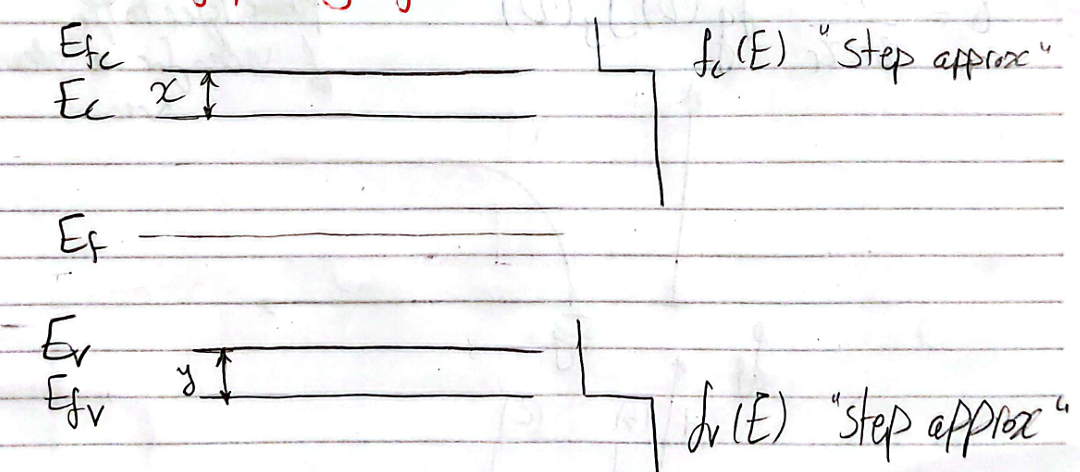 Efc
Ec x
fc (E) "step approx"
Ef
Ev
y
Efv
fv (E) "step approx"